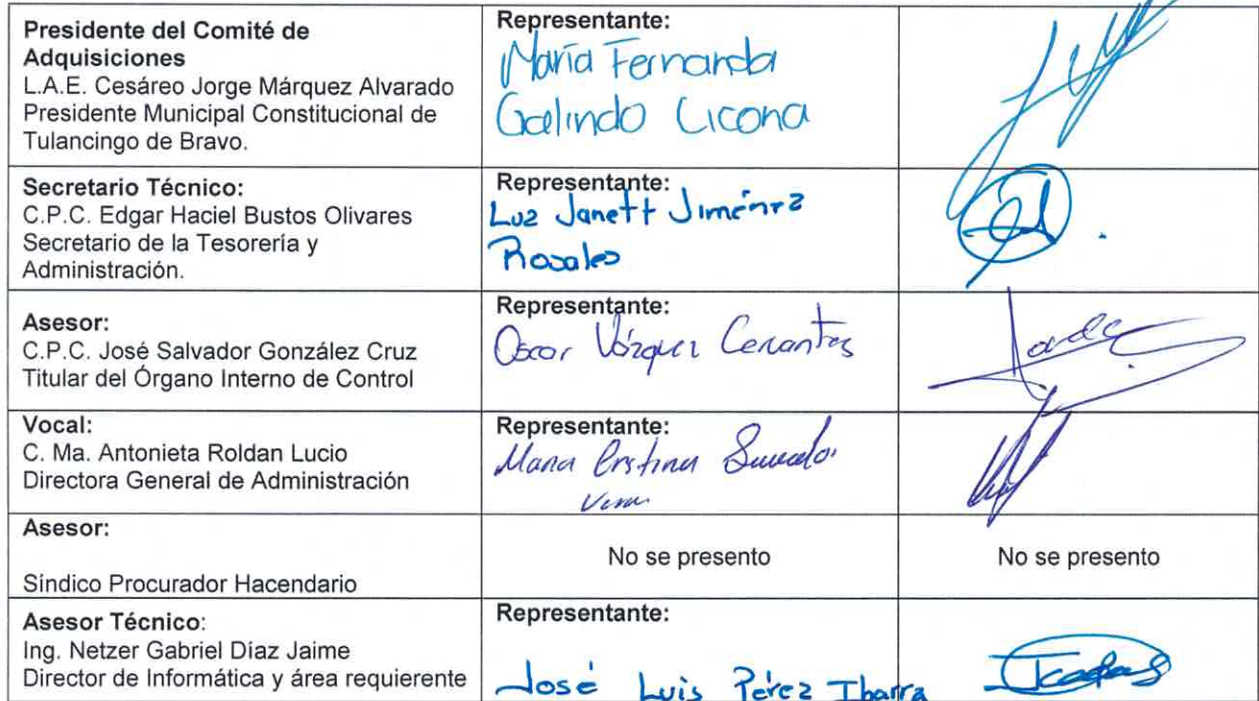 Presidente del Comité de
Adquisiciones
L.A.E. Cesáreo Jorge Márquez Alvarado
Presidente Municipal Constitucional de
Tulancingo de Bravo.
Representante:
María Fernanda
Galindo Cicona
Secretario Técnico:
C.P.C. Edgar Haciel Bustos Olivares
Secretario de la Tesorería y
Administración.
Representante:
Luz Janett Jiménez
Rosales
Asesor:
C.P.C. José Salvador González Cruz
Titular del Órgano Interno de Control
Representante:
Oscar Vázquez Cervantes
Vocal:
C. Ma. Antonieta Roldan Lucio
Directora General de Administración
Representante:
Maria Cristina
Asesor:
Síndico Procurador Hacendario
No se presento
No se presento
Asesor Técnico:
Ing. Netzer Gabriel Díaz Jaime
Director de Informática y área requierente
Representante:
José Luis Pérez Ibarra